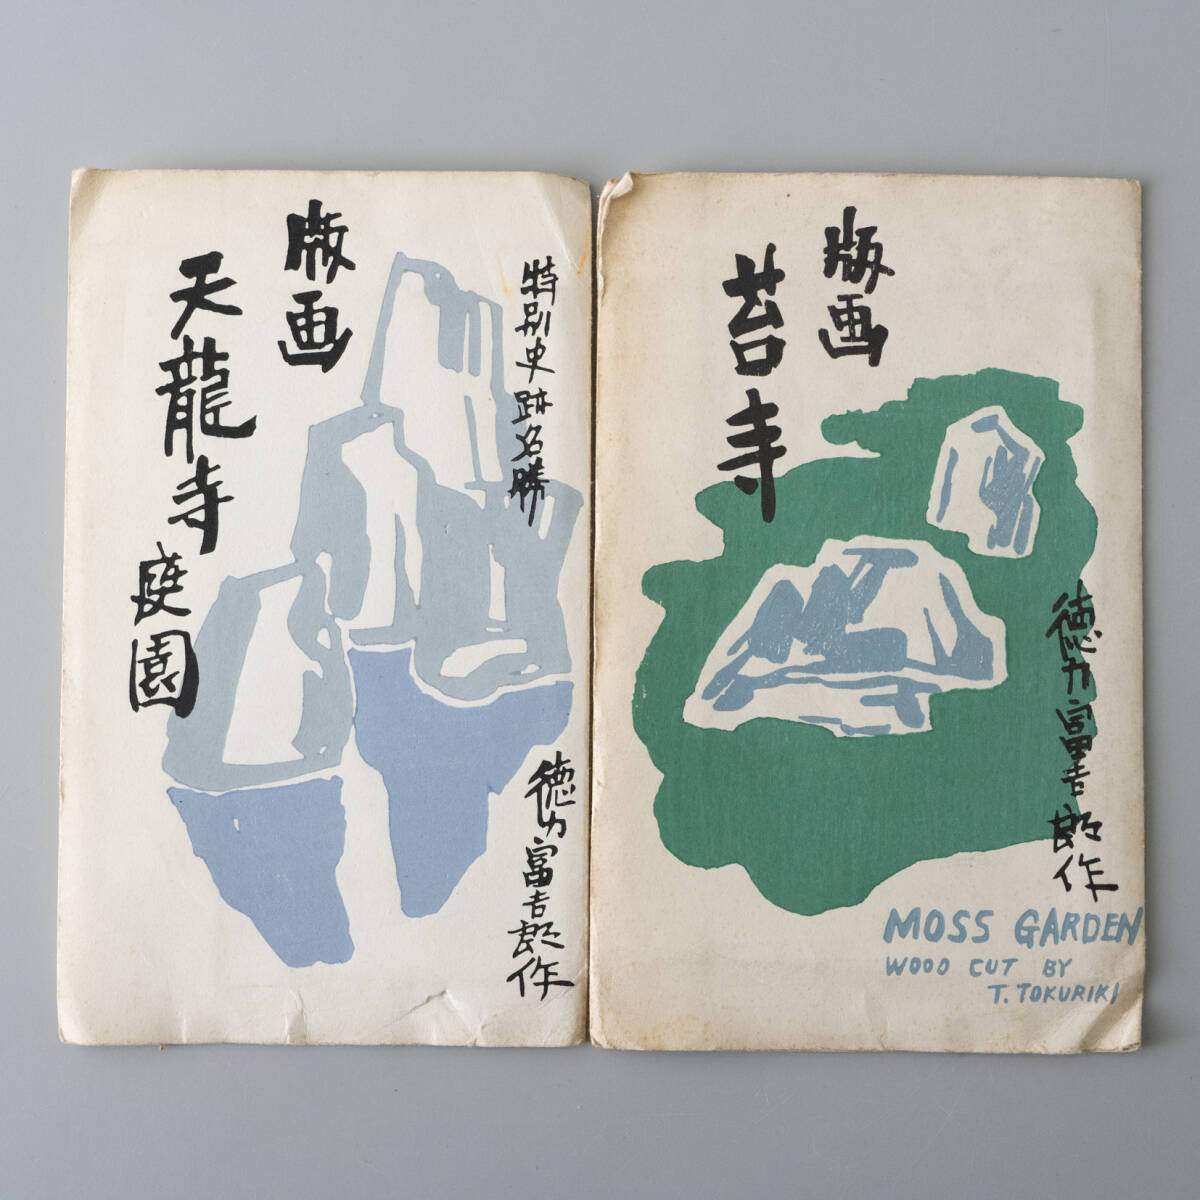 特別史跡名勝
版画
天龍寺
庭園
徳力富吉郎作
版画
苔寺
徳力富吉郎作
MOSS GARDEN
WOOD CUT BY
T. TOKURIKI